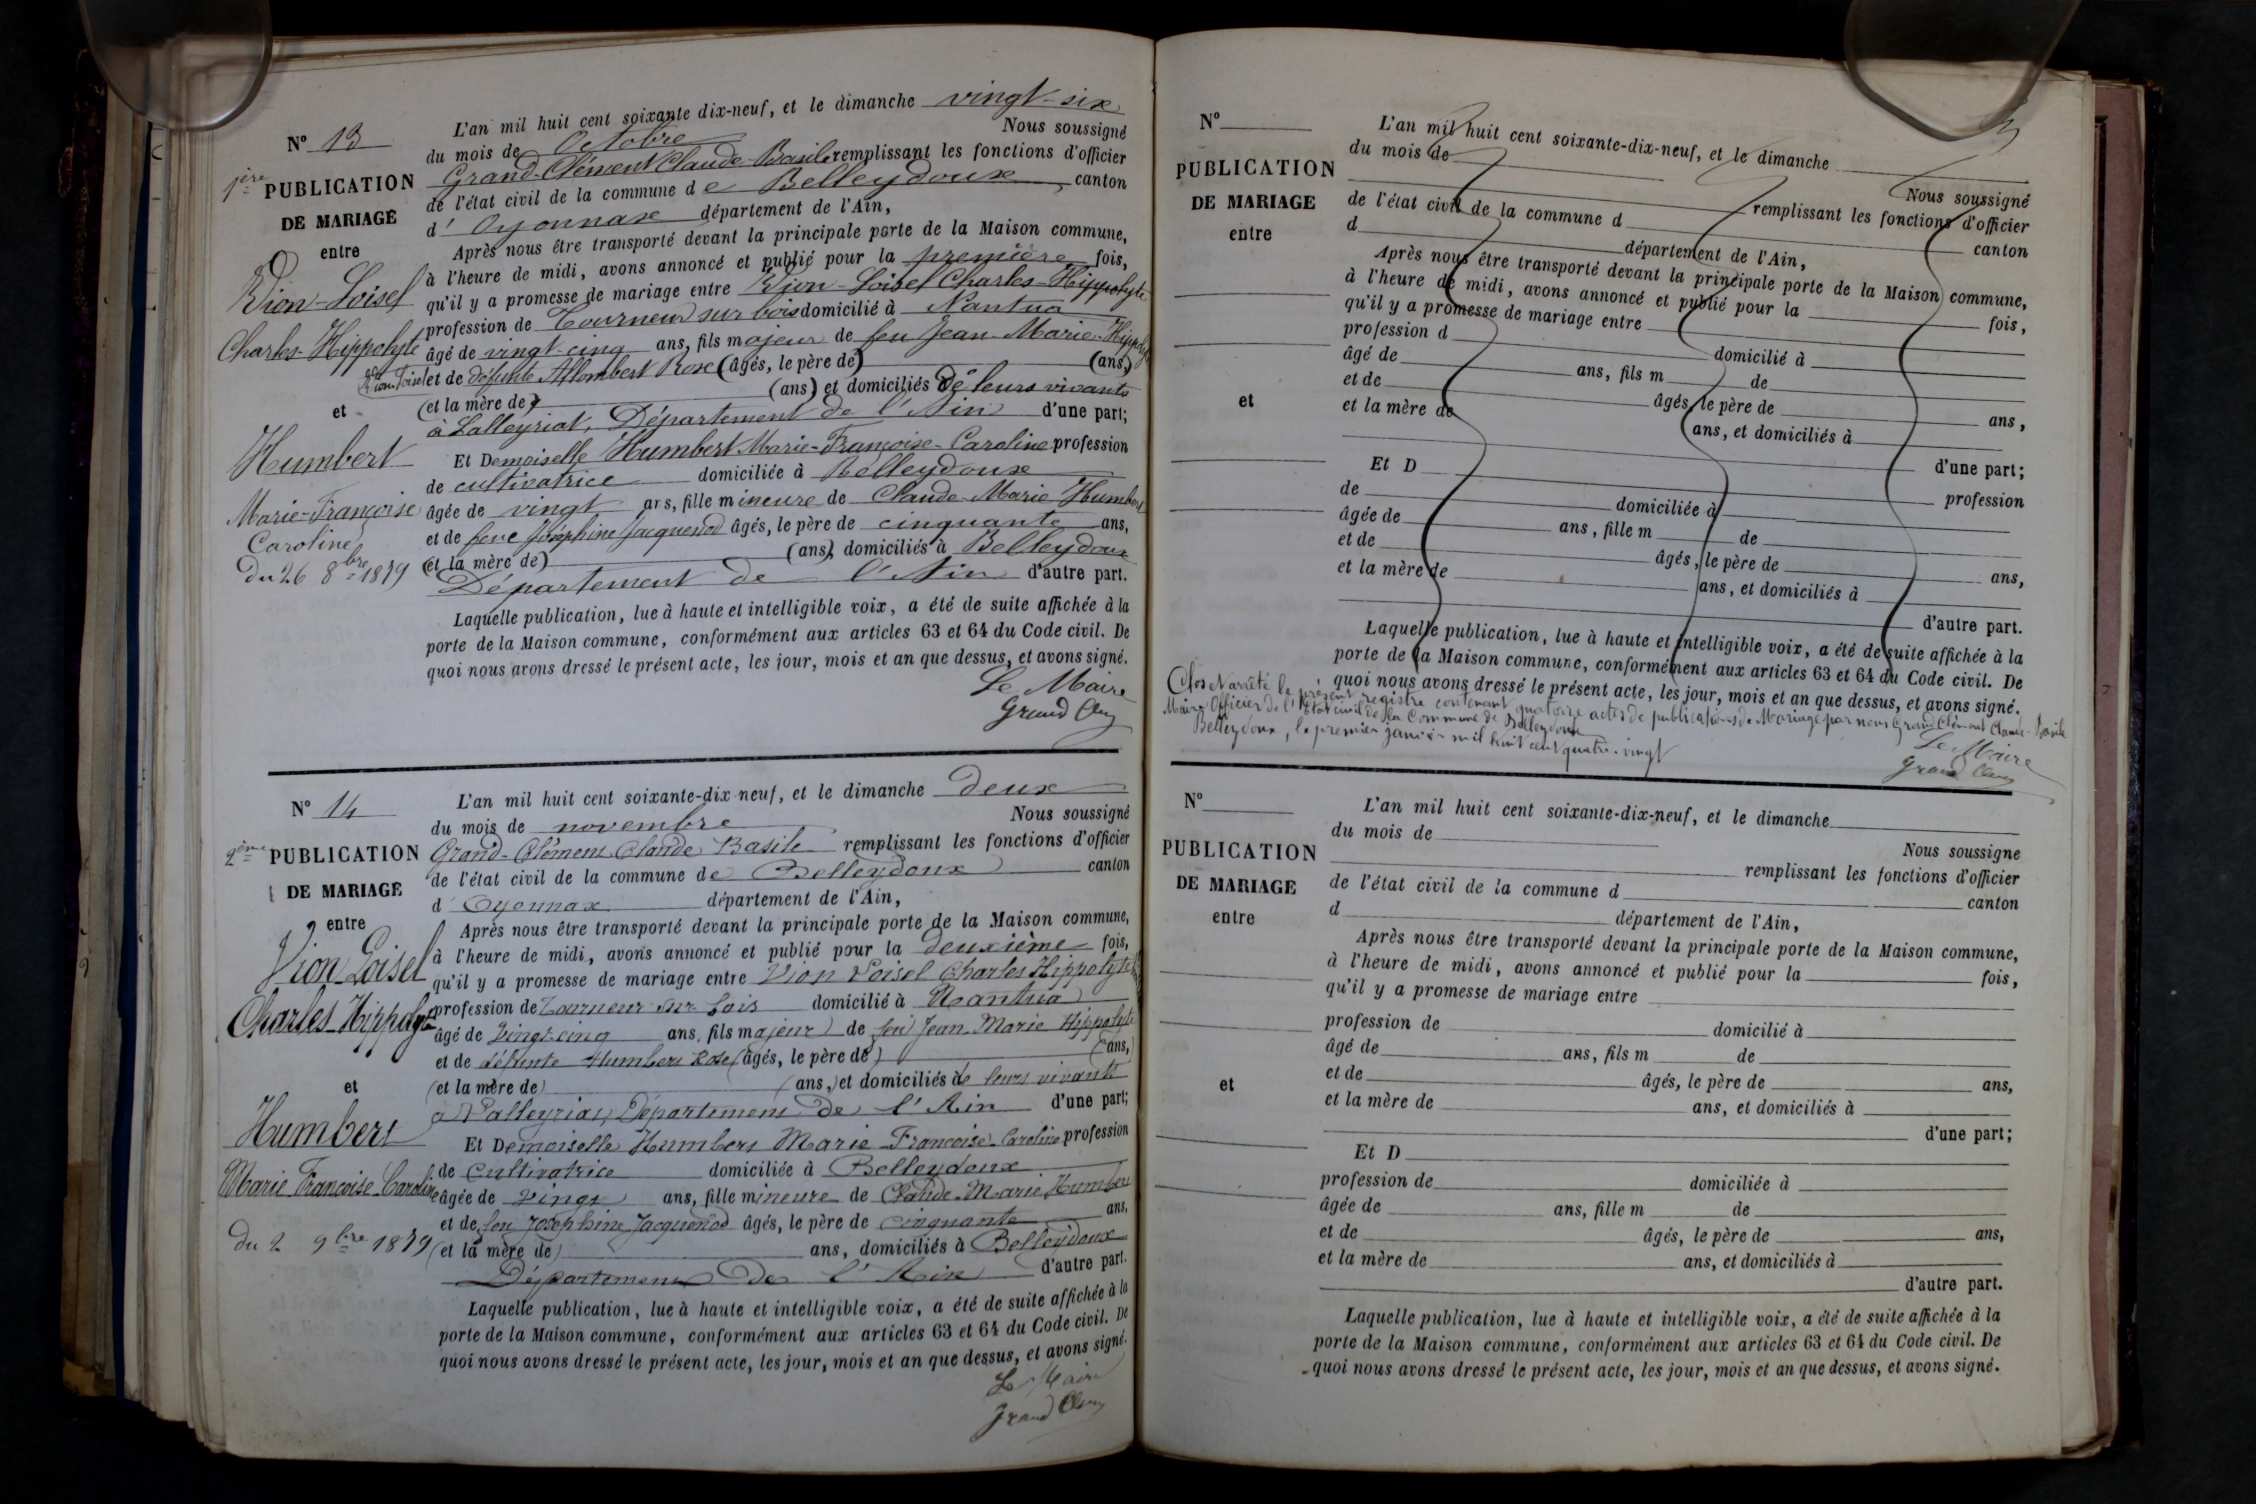 N° 13
1ère PUBLICATION
DE MARIAGE
entre
Vion-Loisel
Charles-Hippolyte
et
Humbert
Marie-Françoise
Caroline
du 26 8bre 1879
L'an mil huit cent soixante dix-neuf, et le dimanche vingt-six
du mois de Octobre Nous soussigné
Grand-Clément Claude-Basile remplissant les fonctions d'officier
de l'état civil de la commune de Belleydoux canton
d'Oyonnax département de l'Ain,
Après nous être transporté devant la principale porte de la Maison commune,
à l'heure de midi, avons annoncé et publié pour la première fois,
qu'il y a promesse de mariage entre Vion-Loisel Charles-Hippolyte
profession de Tourneur sur bois domicilié à Nantua
âgé de vingt-cinq ans, fils majeur de feu Jean-Marie-Hippolyte
Vion-Loisel et de défunte Allombert Rose (âgés, le père de) (ans,)
(et la mère de) (ans) et domiciliés de leurs vivants
à Lalleyriat, Département de l'Ain d'une part;
Et Demoiselle Humbert Marie-Françoise-Caroline profession
de cultivatrice domiciliée à Belleydoux
âgée de vingt ans, fille mineure de Claude-Marie Humbert
et de feue Joséphine Jacquenod âgés, le père de cinquante ans,
(et la mère de) (ans), domiciliés à Belleydoux
Département de l'Ain d'autre part.
Laquelle publication, lue à haute et intelligible voix, a été de suite affichée à la
porte de la Maison commune, conformément aux articles 63 et 64 du Code civil. De
quoi nous avons dressé le présent acte, les jour, mois et an que dessus, et avons signé.
Le Maire
Grand Clém
N° 14
2ème PUBLICATION
DE MARIAGE
entre
Vion Loisel
Charles-Hippolyte
et
Humbert
Marie Françoise-Caroline
du 2 9bre 1879
L'an mil huit cent soixante-dix neuf, et le dimanche deux
du mois de novembre Nous soussigné
Grand-Clément Claude Basile remplissant les fonctions d'officier
de l'état civil de la commune de Belleydoux canton
d'Oyonnax département de l'Ain,
Après nous être transporté devant la principale porte de la Maison commune,
à l'heure de midi, avons annoncé et publié pour la deuxième fois,
qu'il y a promesse de mariage entre Vion Loisel Charles Hippolyte
profession de Tourneur sur bois domicilié à Nantua
âgé de vingt-cinq ans, fils majeur de feu Jean-Marie Hippolyte
et de défunte Humbert Rose (âgés, le père de) (ans,)
(et la mère de) (ans,) et domiciliés de leurs vivants
à Lalleyriat, Département de l'Ain d'une part;
Et Demoiselle Humbert Marie-Françoise-Caroline profession
de Cultivatrice domiciliée à Belleydoux
âgée de vingt ans, fille mineure de Claude-Marie Humbert
et de feu Josephine Jacquenod âgés, le père de cinquante ans,
(et la mère de) ans, domiciliés à Belleydoux
Département de l'Ain d'autre part.
Laquelle publication, lue à haute et intelligible voix, a été de suite affichée à la
porte de la Maison commune, conformément aux articles 63 et 64 du Code civil. De
quoi nous avons dressé le présent acte, les jour, mois et an que dessus, et avons signé.
Le Maire
Grand Clém
N°
PUBLICATION
DE MARIAGE
entre
et
L'an mil huit cent soixante-dix-neuf, et le dimanche
du mois de
Nous soussigné
remplissant les fonctions d'officier
de l'état civil de la commune d
canton
d département de l'Ain,
Après nous être transporté devant la principale porte de la Maison commune,
à l'heure de midi, avons annoncé et publié pour la fois,
qu'il y a promesse de mariage entre
profession d domicilié à
âgé de ans, fils m de
et de âgés, le père de ans,
et la mère de ans, et domiciliés à
d'une part;
Et D profession
de domiciliée à
âgée de ans, fille m de
et de âgés, le père de ans,
et la mère de ans, et domiciliés à
d'autre part.
Laquelle publication, lue à haute et intelligible voix, a été de suite affichée à la
porte de la Maison commune, conformément aux articles 63 et 64 du Code civil. De
quoi nous avons dressé le présent acte, les jour, mois et an que dessus, et avons signé.
Clos et arrêté le présent registre contenant quatorze actes de publications de Mariage par nous Grand Clément Claude-Basile
Maire Officier de l'Etat civil de la Commune de Belleydoux
Belleydoux, le premier janvier mil huit cent quatre-vingt
Le Maire
Grand Clém
N°
PUBLICATION
DE MARIAGE
entre
et
L'an mil huit cent soixante-dix-neuf, et le dimanche
du mois de
Nous soussigne
remplissant les fonctions d'officier
de l'état civil de la commune d
canton
d département de l'Ain,
Après nous être transporté devant la principale porte de la Maison commune,
à l'heure de midi, avons annoncé et publié pour la fois,
qu'il y a promesse de mariage entre
profession de domicilié à
âgé de ans, fils m de
et de âgés, le père de ans,
et la mère de ans, et domiciliés à
d'une part;
Et D
profession de domiciliée à
âgée de ans, fille m de
et de âgés, le père de ans,
et la mère de ans, et domiciliés à
d'autre part.
Laquelle publication, lue à haute et intelligible voix, a été de suite affichée à la
porte de la Maison commune, conformément aux articles 63 et 64 du Code civil. De
quoi nous avons dressé le présent acte, les jour, mois et an que dessus, et avons signé.